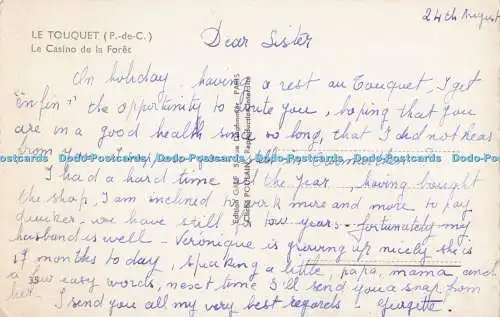 LE TOUQUET (P.-de-C.)
Le Casino de la Forêt
24th August
Dear Sister
On holiday, having a rest au Touquet, I get
"enfin" the opportunity to write you, hoping that you
are in a good health since so long, that I did not hear
from you.
I had a hard time of the year, having bought
the shop, I am inclined to work more and more to pay
quicker. We have still a few years. fortunately my
husband is well - Veronique is growing up nicely she is
months to day, speaking a little, papa, mama and
a few easy words, next time I'll send you a snap from
her. I send you all my very best regards -
33
Dodo-Postcards Dodo-Postcards Dodo-Postcards Dodo-Postcards Dodo-Postcards